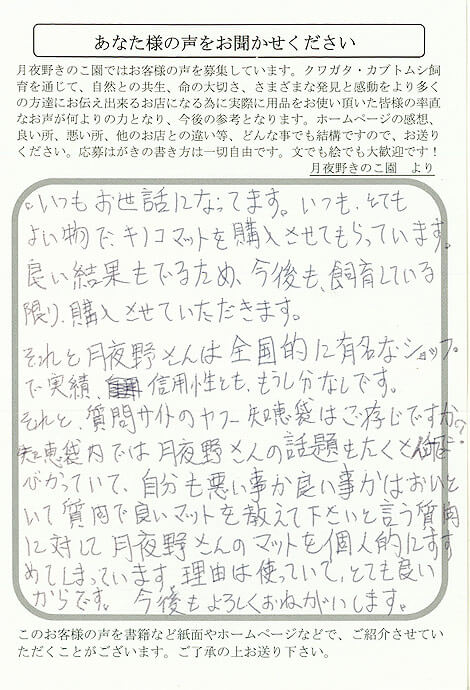 あなた様の声をお聞かせください
月夜野きのこ園ではお客様の声を募集しています。クワガタ・カブトムシ飼
育を通じて、自然との共生、命の大切さ、さまざまな発見と感動をより多く
の方達にお伝え出来るお店になる為に実際に用品をお使い頂いた皆様の率直
なお声が何よりの力となり、今後の参考となります。ホームページの感想、
良い所、悪い所、他のお店との違い等、どんな事でも結構ですので、お送り
ください。応募はがきの書き方は一切自由です。文でも絵でも大歓迎です！
月夜野きのこ園　より
。いつもお世話になってます。いつも、とても
よい物で、キノコマットを購入させてもらっています。
良い結果もでるため、今後も、飼育している
限り、購入させていただきます。
それと月夜野さんは全国的に有名なショップ
で実績、信用性とも、もうし分なしです。
それと、質問サイトのヤフー知恵袋はご存じですか？
知恵袋内では月夜野さんの話題もたくさん
びかっていて、自分も悪い事か良い事かはおいと
いて質問で良いマットを教えて下さいと言う質問
に対して月夜野さんのマットを個人的にすす
めてしまっています。理由は使っていて、とても良い
からです。今後もよろしくおねがいします。
このお客様の声を書籍など紙面やホームページなどで、ご紹介させてい
ただくことがございます。ご了承の上お送り下さい。